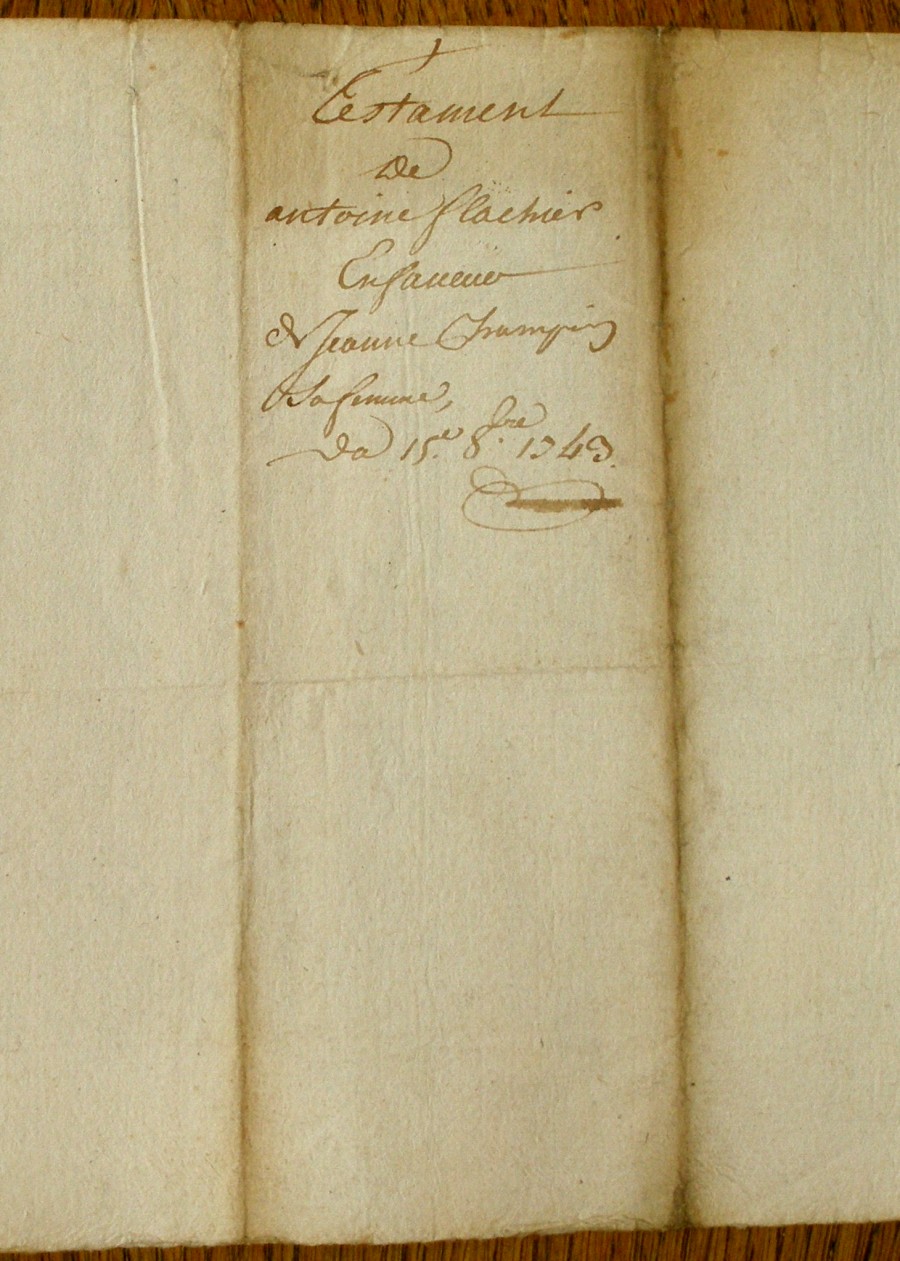 Testament
De
antoine flachier
En faveur
de Jeanne Champin
Sa femme,
Du 15.e 8.bre 1743.